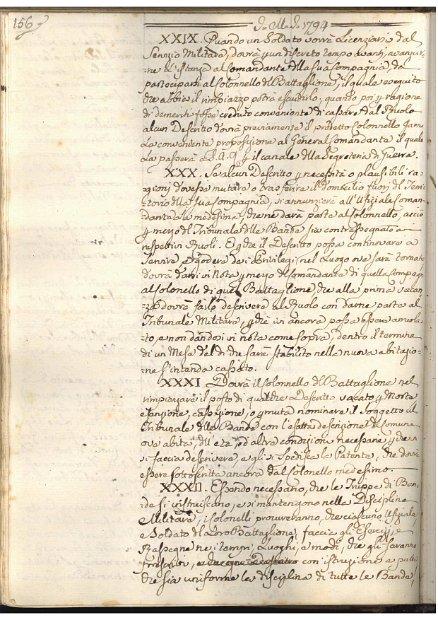 156
1794
XXIX. Quando un Soldato vorrà Licenziarsi dal
Servizio Militare, dovrà p un discreto tempo avanti avanzar-
ne l'istanza al Comandante della sua Compagnia, da
parteciparsi al Colonnello del Battaglione, il quale seguito
che abbia il rimpiazzo potrà esaudirlo, quando poi p ragione
di demeriti fosse creduto conveniente di cassare dal Ruolo
alcun Descritto dovrà previamente il predetto Colonnello farne
la conveniente proposizione al General Comandante il quale
la passerà a S.A.R. p il canale della Segreteria di Guerra.
XXX. Se alcun Descritto p necessità o plausibili ra-
gioni dovesse mutare o trasferire il Domicilio fuori del Terri-
torio della sua Compagnia, si annunzierà all'Ufiziale Coman-
dante la medesima, che ne darà parte al Colonnello, acciò
p mezzo del Tribunale delle Bande sia contrassegnato a
rispettivi Ruoli. E qual Descritto possa continuare a
Servire, e godere de i Privilegj nel Luogo ove sarà tornato
dovrà darsi in Nota p mezzo del Comandante di quella Compag.
al Colonnello di quel Battaglione che alla prima vacan-
za dovrà farlo descrivere al Ruolo con darne parte al
Tribunale Militare, p che vi ancora possa essere annota-
to, e non dandosi in nota come sopra, dentro il termine
di un Mese dal dì che sarà stabilito nella nuova abitazio-
ne s'intenda cassato.
XXXI. Dovrà il Colonnello del Battaglione nel
rimpiazzare il posto di qualche Descritto vacato p Morte
esenzione, cassazione, o p muta nominare il soggetto al
Tribunale delle Bande con l'esatta descrizione del Comune
ove abita, dell'età, ed altre condizioni necessarie, p che
si faccia descrivere, e gli si spedisca la Patente, che dovrà
essere sottoscritta ancora dal Colonnello medesimo.
XXXII. Essendo necessario, che le Truppe di Ban-
de si instruiscano, e si mantenghino nella Disciplina
Militare, i Colonelli procureranno, che ciascun Ufiziale
e Soldato del loro Battaglione faccia gli Esercizj, e
Rassegne ne i tempi, Luoghi, e modi, che gli saranno
prescritti, con istruzione a parte
che sia uniforme la disciplina di tutte le Bande,